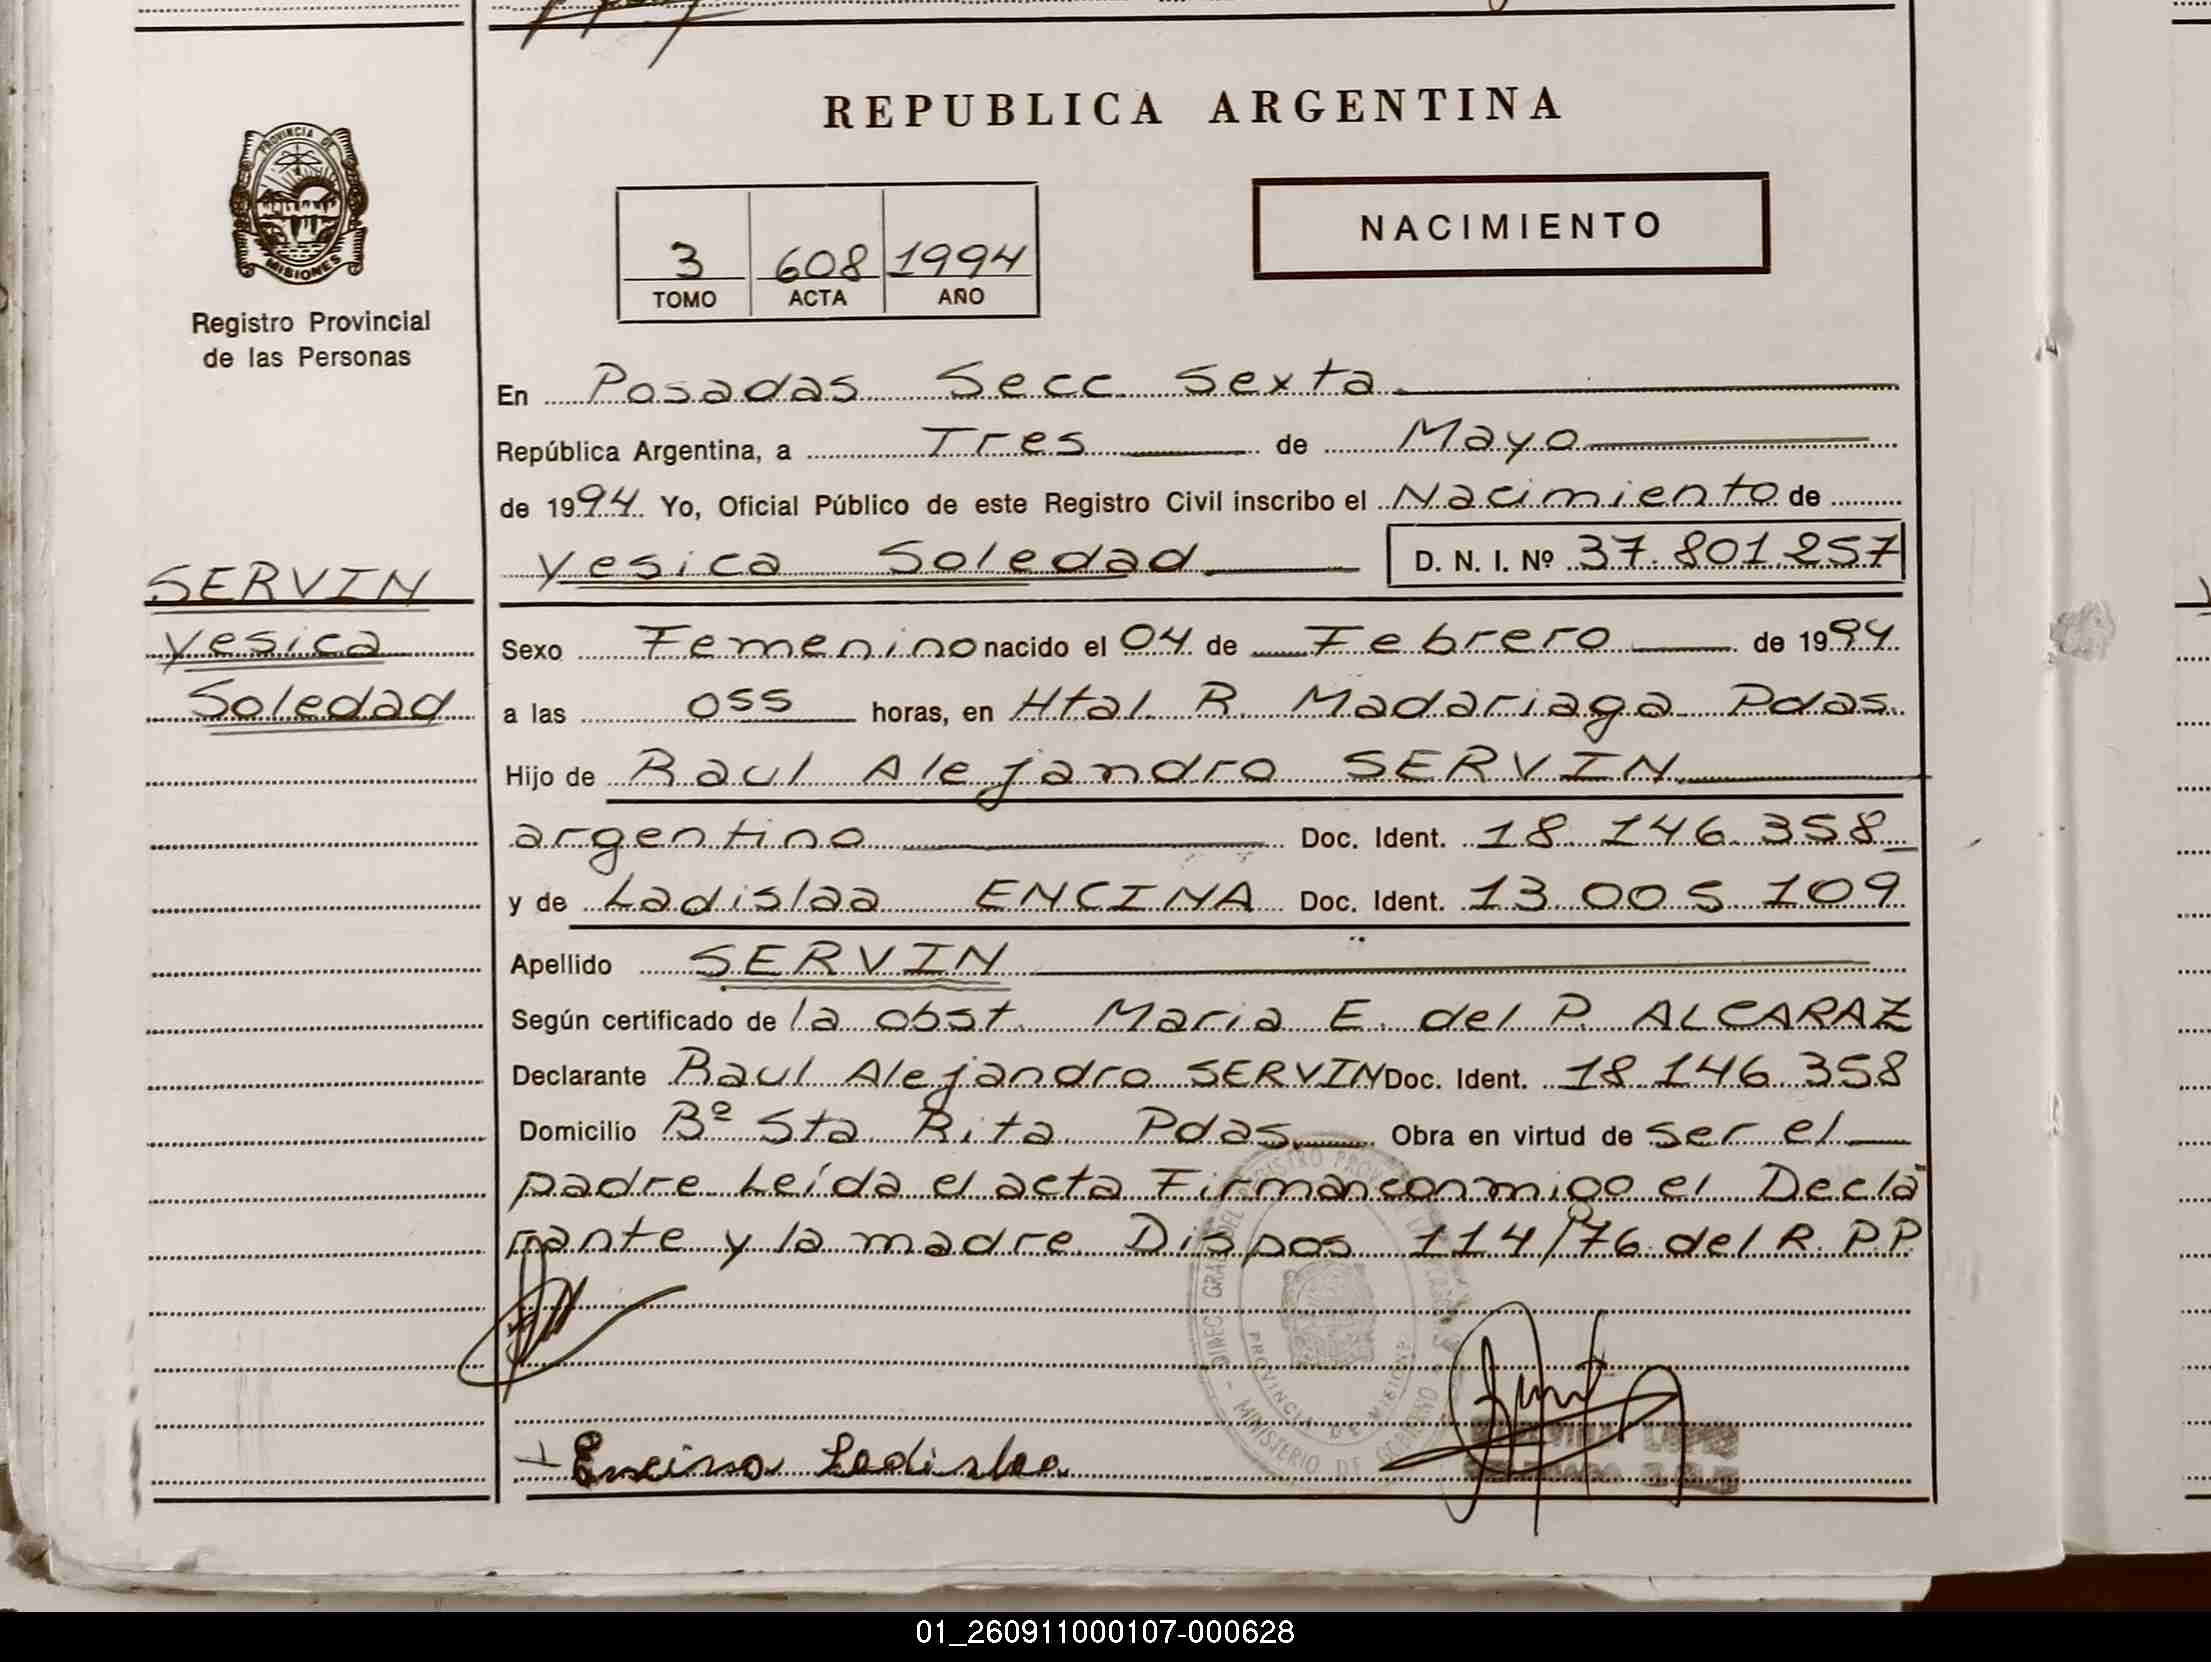 REPUBLICA ARGENTINA
PROVINCIA DE
MISIONES
Registro Provincial
de las Personas
3 608 1994
TOMO ACTA AÑO
NACIMIENTO
En Posadas Secc Sexta
República Argentina, a Tres de Mayo
de 1994 Yo, Oficial Público de este Registro Civil inscribo el Nacimiento de
Yesica Soledad D. N. I. Nº 37.801.257
SERVIN
Yesica
Soledad
Sexo Femenino nacido el 04 de Febrero de 1994
a las 055 horas, en Htal R. Madariaga Pdas.
Hijo de Raul Alejandro SERVIN
argentino Doc. Ident. 18.146.358
y de Ladislaa ENCINA Doc. Ident. 13.005.109
Apellido SERVIN
Según certificado de la obst. Maria E. del P. ALCARAZ
Declarante Raul Alejandro SERVIN Doc. Ident. 18 146 358
Domicilio Bº Sta Rita Pdas. Obra en virtud de ser el
padre Leída el acta Firman conmigo el Decla
rante y la madre Dispos 114/76 del R.P.P.
PROVINCIA DE MISIONES
MINISTERIO DE GOBIERNO
Encina Ladislaa
01_260911000107-000628